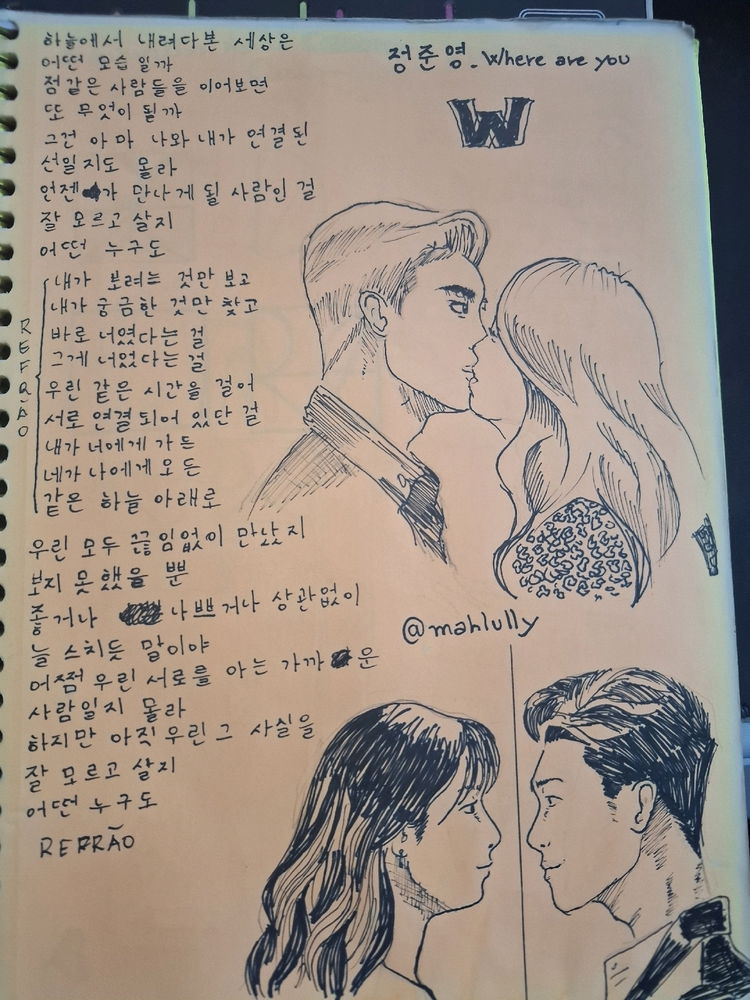 하늘에서 내려다본 세상은
어떤 모습 일까
점같은 사람들을 이어보면
또 무엇이 될까
그건 아마 나와 내가 연결된
선일지도 몰라
언젠가 만나게 될 사람인 걸
잘 모르고 살지
어떤 누구도
REFRÃO
내가 보려는 것만 보고
내가 궁금한 것만 찾고
바로 너였다는 걸
그게 너었다는 걸
우린 같은 시간을 걸어
서로 연결되어 있단 걸
내가 너에게 가든
네가 나에게 오든
같은 하늘 아래로
우린 모두 끊임없이 만났지
보지 못했을 뿐
좋거나 나쁘거나 상관없이
늘 스치듯 말이야
어쩜 우린 서로를 아는 가까운
사람일지 몰라
하지만 아직 우린 그 사실을
잘 모르고 살지
어떤 누구도
REFRÃO
정준영. Where are you
W
@mahlully